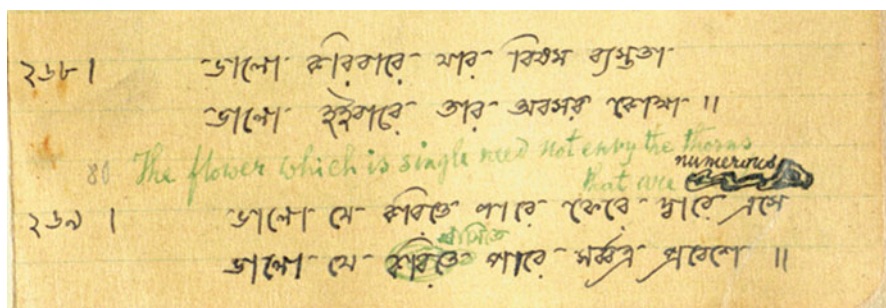 ২৬৮। ভালো করিবারে যার বিষম ব্যস্ততা
ভালো হইবারে তার অবসর কোথা॥
80 The flower which is single need not envy the thorns
that are numerous
২৬৯। ভালো যে করিতে পারে ফেরে দ্বারে এসে
ভালো যে বাসিতে পারে সর্ব্বত্র প্রবেশে॥